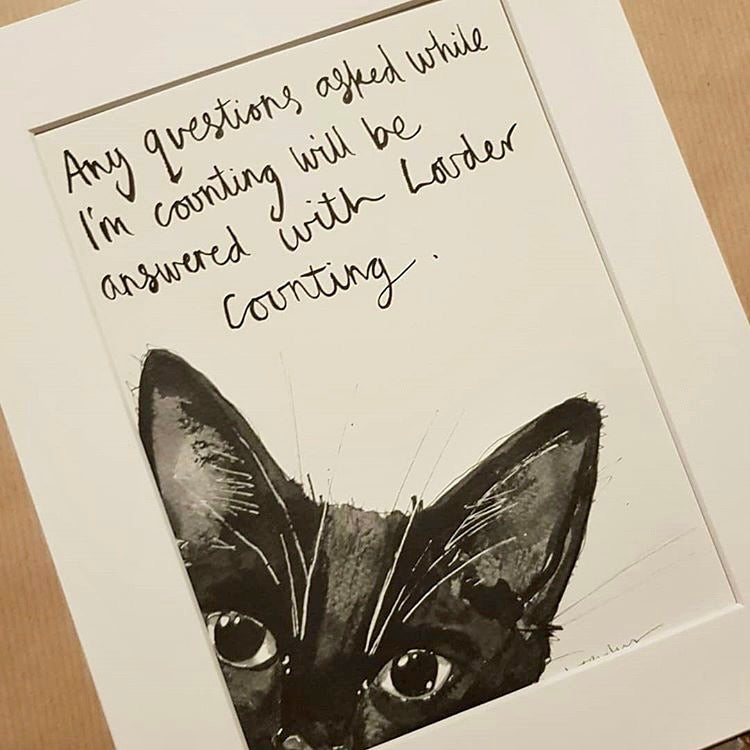 Any questions asked while
I'm counting will be
answered with Louder
counting.